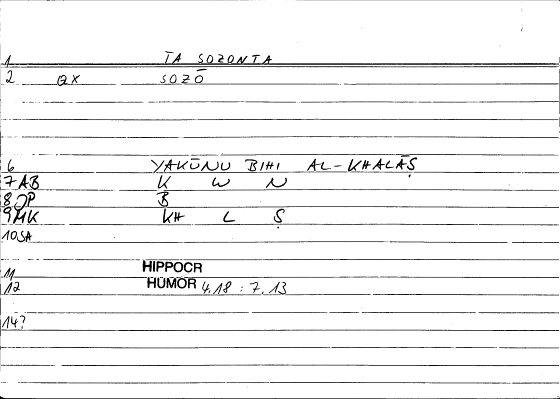 1 TA SOZONTA
2 QX SOZŌ
6 YAKŪNU BIHI AL-KHALĀṢ
7 AB K W N
8 JP B
9 MK KH L Ṣ
10 SA
11 HIPPOCR
12 HUMOR 4.18 : 7.13
14?